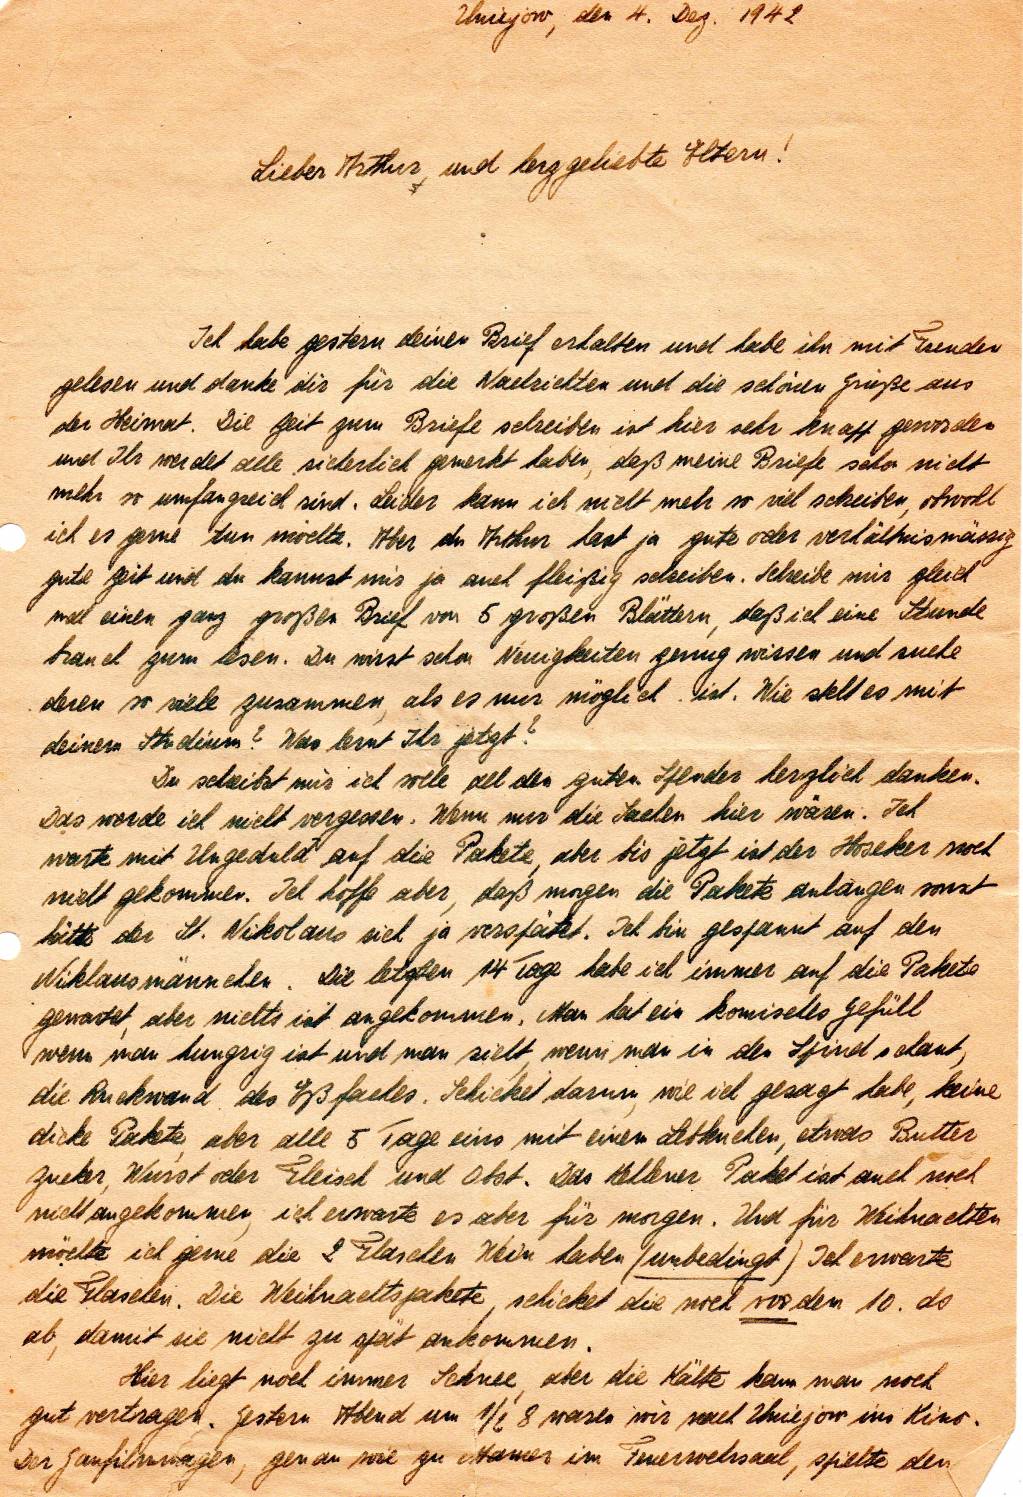 Uniejow, den 4. Dez. 1942
Lieber Arthur, und herzgeliebte Eltern!
Ich habe gestern deinen Brief erhalten und habe ihn mit Freuden
gelesen und danke dir für die Nachrichten und die schönen Grüße aus
der Heimat. Die Zeit zum Briefe schreiben ist hier sehr knapp geworden
und Ihr werdet alle sicherlich gemerkt haben, daß meine Briefe schon nicht
mehr so umfangreich sind. Leider kann ich nicht mehr so viel schreiben, obwohl
ich es gerne tun möchte. Aber du Arthur hast ja gute oder verhältnismässig
gute Zeit und du kannst mir ja auch fleißig schreiben. Schreibe mir gleich
mal einen ganz großen Brief von 5 großen Blättern, daß ich eine Stunde
brauch zum lesen. Du wirst schon Neuigkeiten genug wissen und suche
deren so viele zusammen, als es nur möglich ist. Wie steht es mit
deinem Studium? Was lernt Ihr jetzt?
Du schreibst mir ich solle all den guten Spender herzlich danken.
Das werde ich nicht vergessen. Wenn nur die Sachen hier wären. Ich
warte mit Ungeduld auf die Pakete, aber bis jetzt ist der Hoseker noch
nicht gekommen. Ich hoffe aber, daß morgen die Pakete anlangen sonst
hätte der St. Nikolaus sich ja verspätet. Ich bin gespannt auf den
Niklausmännchen. Die letzten 14 Tage habe ich immer auf die Pakete
gewartet, aber nichts ist angekommen. Man hat ein komisches Gefühl
wenn man hungrig ist und man sieht, wenn man in den Spind schaut,
die Ruckwand des Eßfaches. Schicket darum, wie ich gesagt habe, keine
dicke Pakete, aber alle 5 Tage eins mit einem Lebkuchen, etwas Butter
Zucker, Wurst oder Fleisch und Obst. Das Kehlener Paket ist auch noch
nicht angekommen, ich erwarte es aber für morgen. Und für Weihnachten
möchte ich gerne die 2 Flaschen Wein haben (unbedingt) Ich erwarte
die Flaschen. Die Weihnachtspakete, schicket die noch vor den 10. ds
ab, damit sie nicht zu spät ankommen.
Hier liegt noch immer Schnee, aber die Kälte kann man noch
gut vertragen. Gestern Abend um 1/2 8 waren wir nach Uniejow ins Kino.
Der Gaufilmwagen, genau wie zu Mamer im Feuerwehrsaal, spielte den